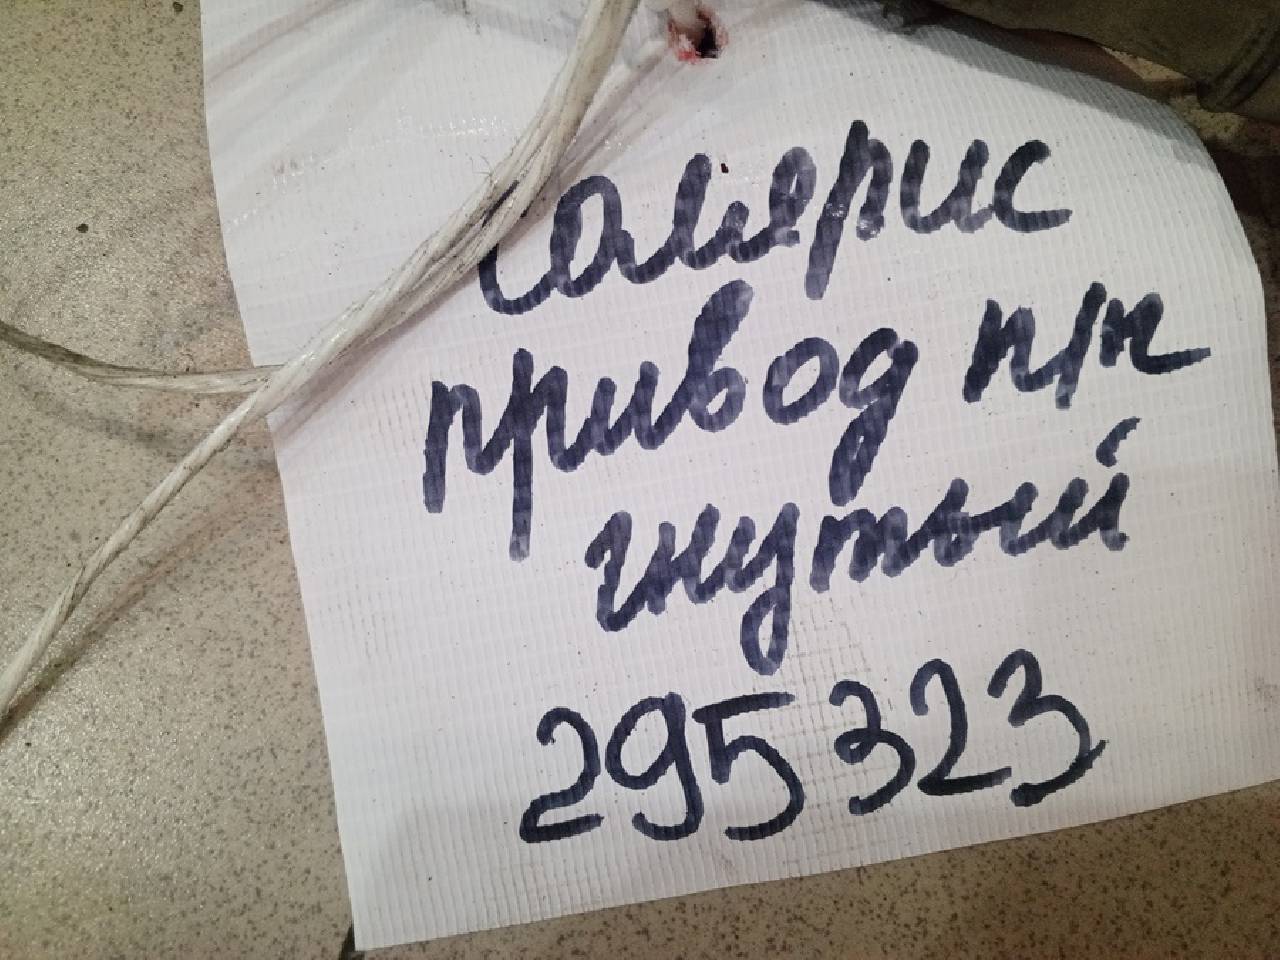 Солерис
привод п/п
гнутый
295323